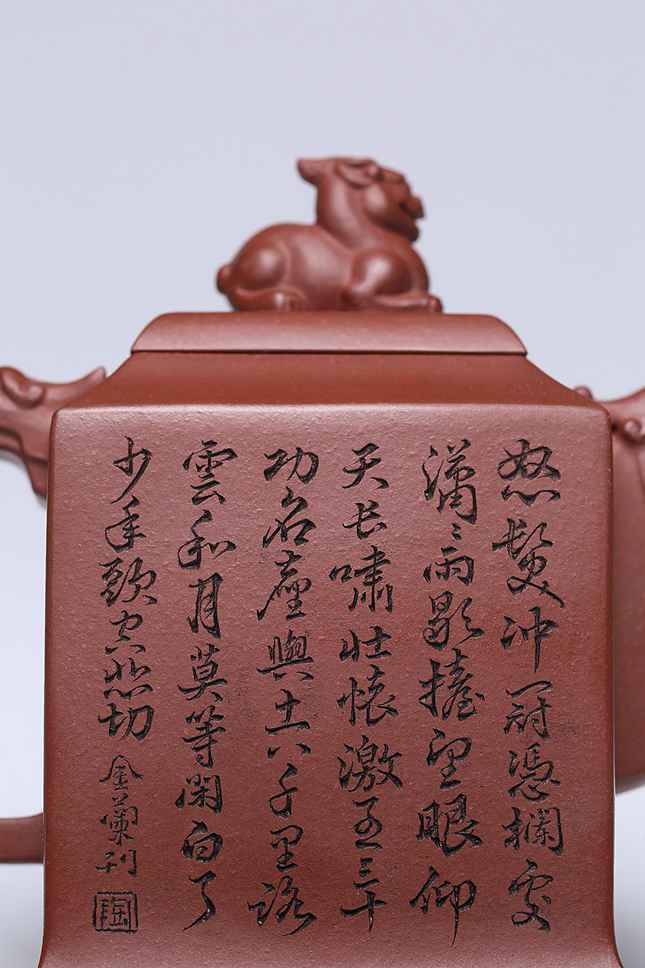 怒髮冲冠憑欄處
瀟〻雨歇擡望眼仰
天长嘯壯懷激三十
功名塵與土八千里路
雲和月莫等閑白了
少年頭空悲切
金蘭刊
陶